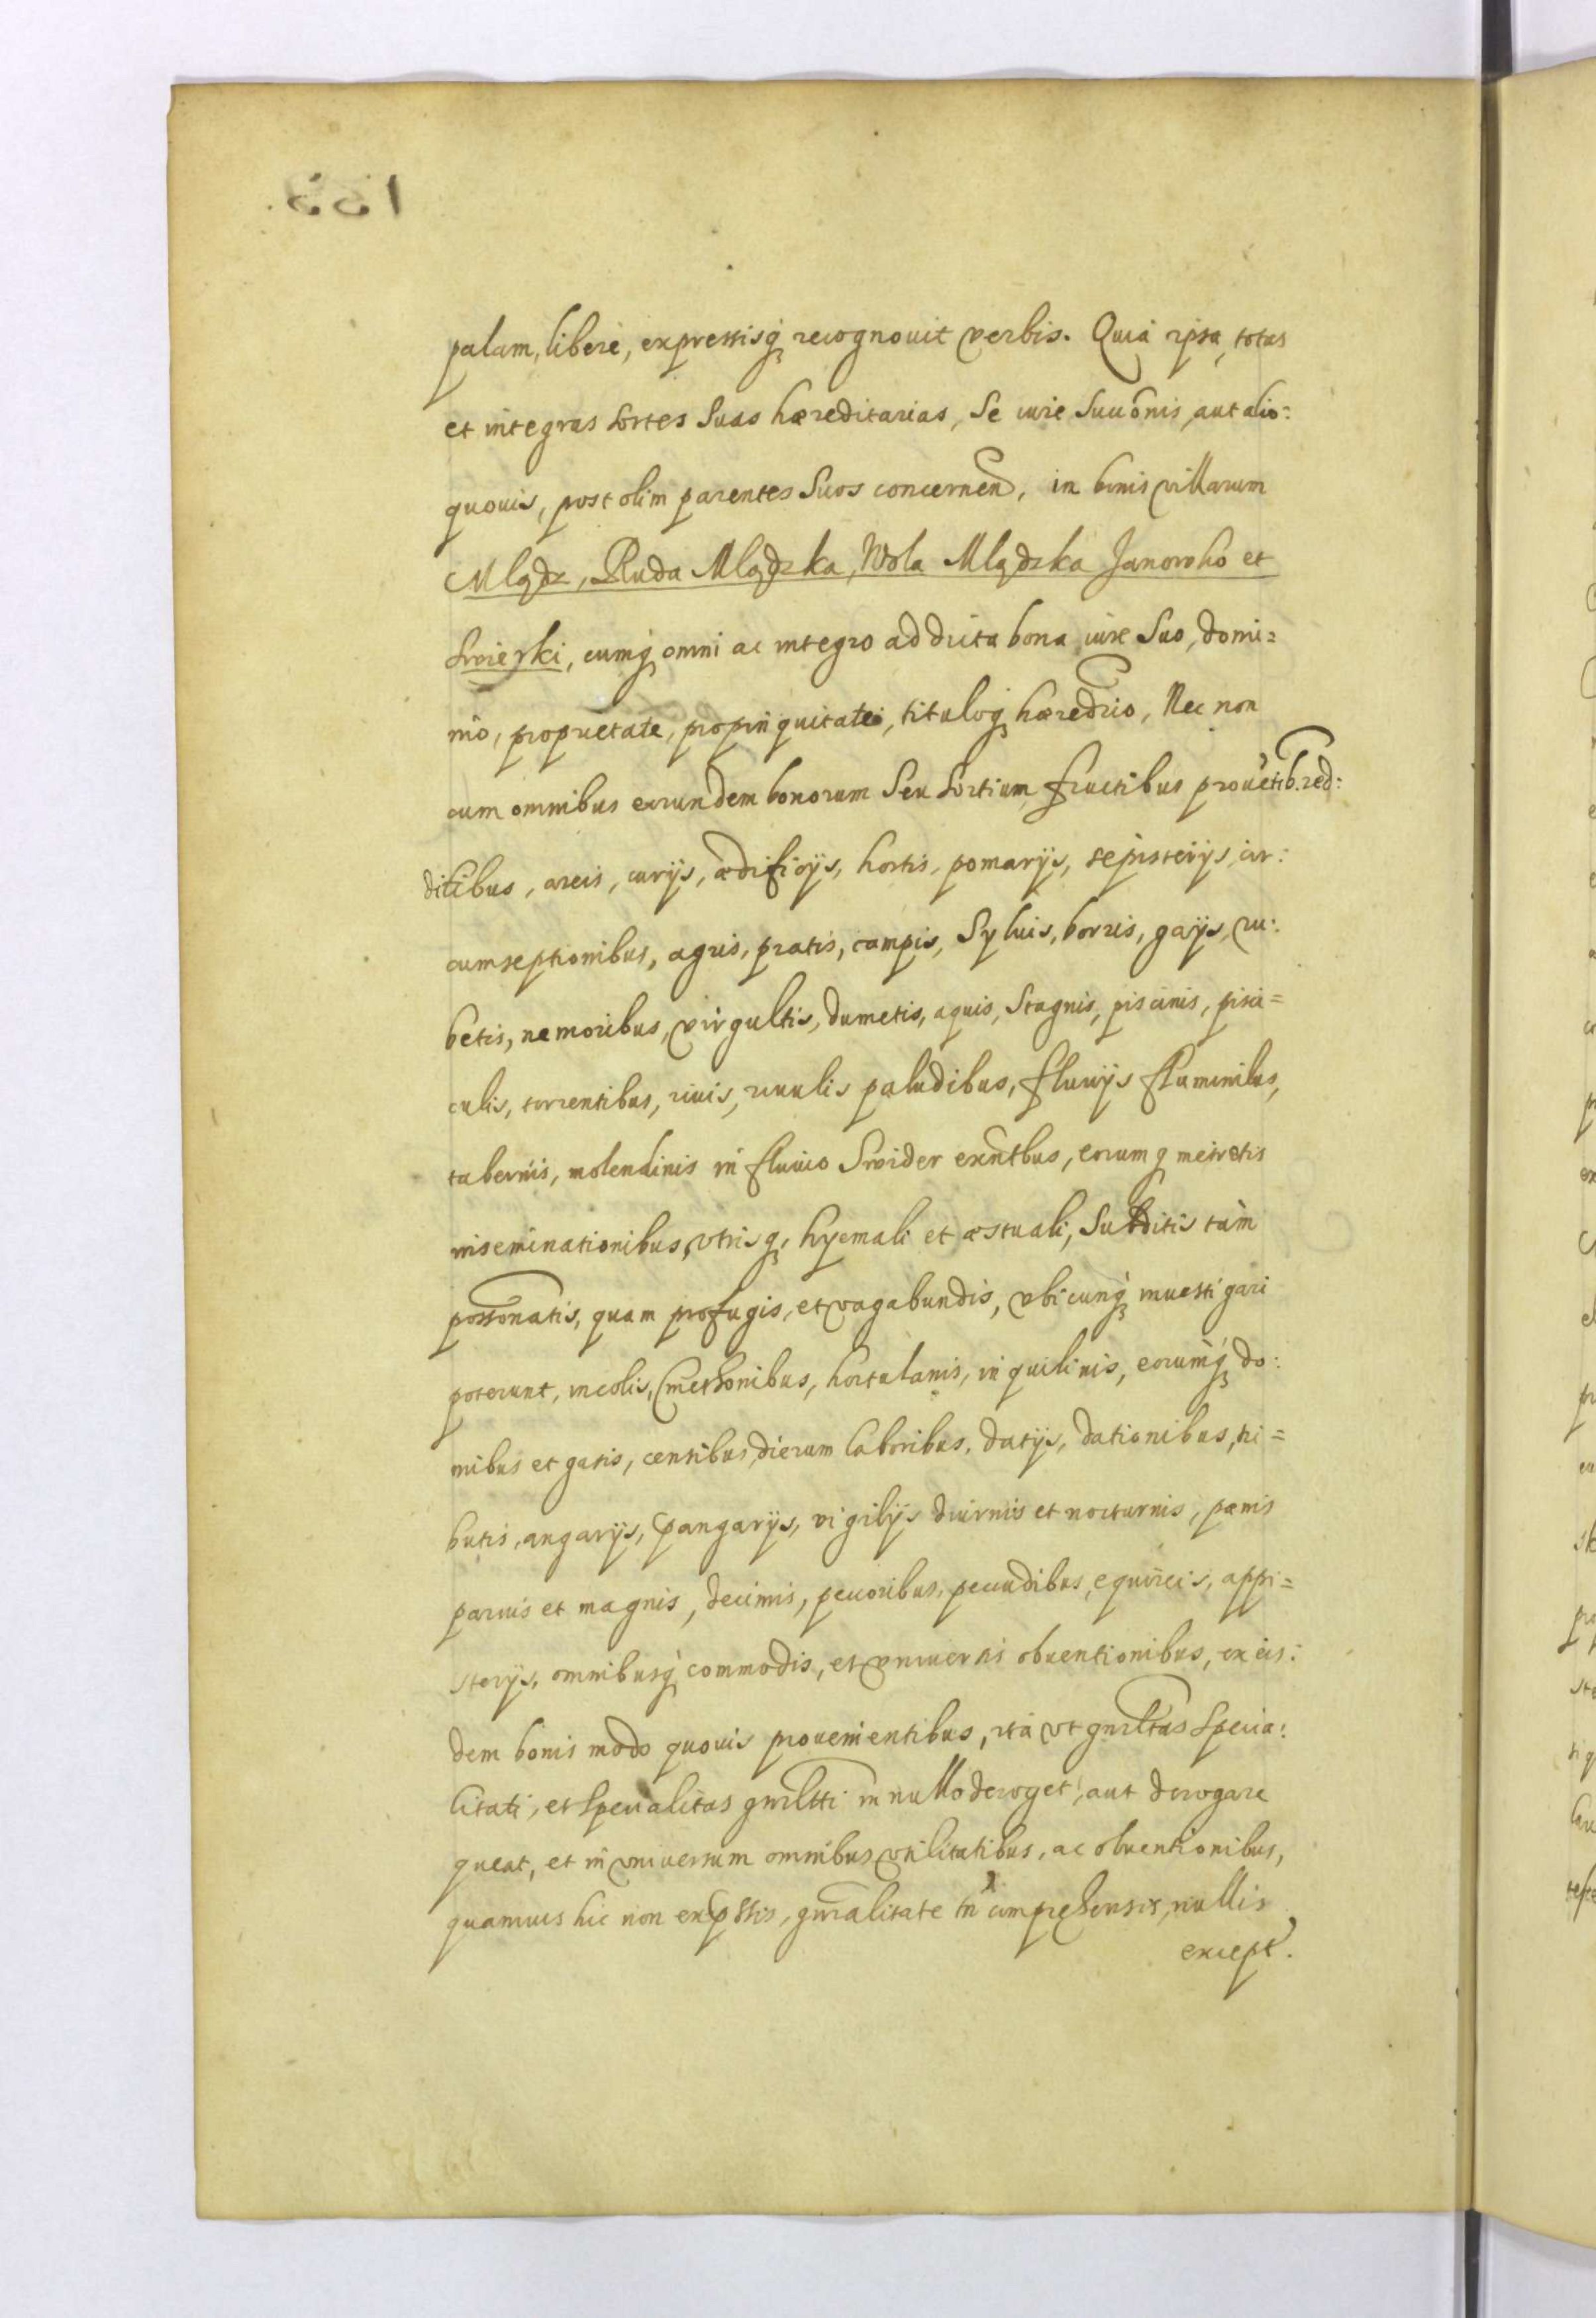 palam, libere, expressisq́ recognouit verbis. Quia ipsa, totas
et integras sortes suas hæreditarias, se iure succ̃onis, aut alio:
quouis, post olim parentes suos concernen, in bonis villarum
Mlądz, Ruda Mlądzka, Wola Mlądzka Janowko et
Swierki, cumq́ omni ac integro ad dicta bona iure suo, domi=
nio, proprietate, propinquitate, tituloq́ hæredrio, Nec non
cum omnibus eorundem bonorum seu sortium fructibus prouẽtib. red:
ditibus, areis, curijs, ædificijs, hortis, pomarijs, sepisterijs, cir:
cumseptionibus, agris, pratis, campis, syluis, borris, gaijs, ru:
betis, nemoribus, virgultis, dumetis, aquis, stagnis, piscinis, pisci=
culis, torrentibus, riuis, riuulis paludibus, fluuijs fluminibus,
tabernis, molendinis in fluuio Swider exñtbus, eorumq́ metretis
inseminationibus, vtrisq́, hyemali et æstuali, subditis tàm
possonatis, quam profugis, et vagabundis, vbicunq́ inuestigari
poterunt, incolis, Cmethonibus, hortulanis, inquilinis, eorumq́ do:
mibus et gazis, censibus, dierum laboribus, datijs, dationibus, tri=
butis, angarijs, pangarijs, vigilijs diurnis et nocturnis, pænis
paruis et magnis, decimis, pecoribus, pecudibus, equireis, appi=
sterijs, omnibusq́ commodis, et vniuersis obuentionibus, ex eis:
dem bonis modo quouis prouenientibus, ità vt gnrltas specia:
litati, et specialitas gnrltti in nullo deroget, aut derogare
queat, et in vniuersum omnibus vtilitatibus, ac obuentionibus,
quamuis hic non expssis, gñralitate tñ comprehensis, nullis
except.